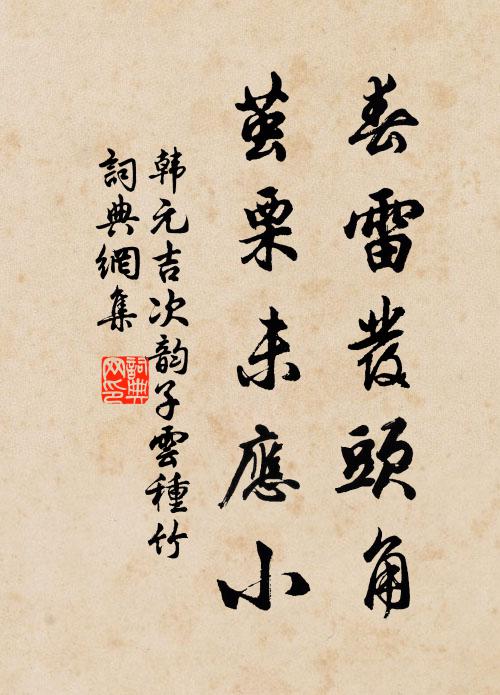 春雷發頭角
茧栗未應小
韩元吉次韵子雲種竹
詞典網集
詞典
网印